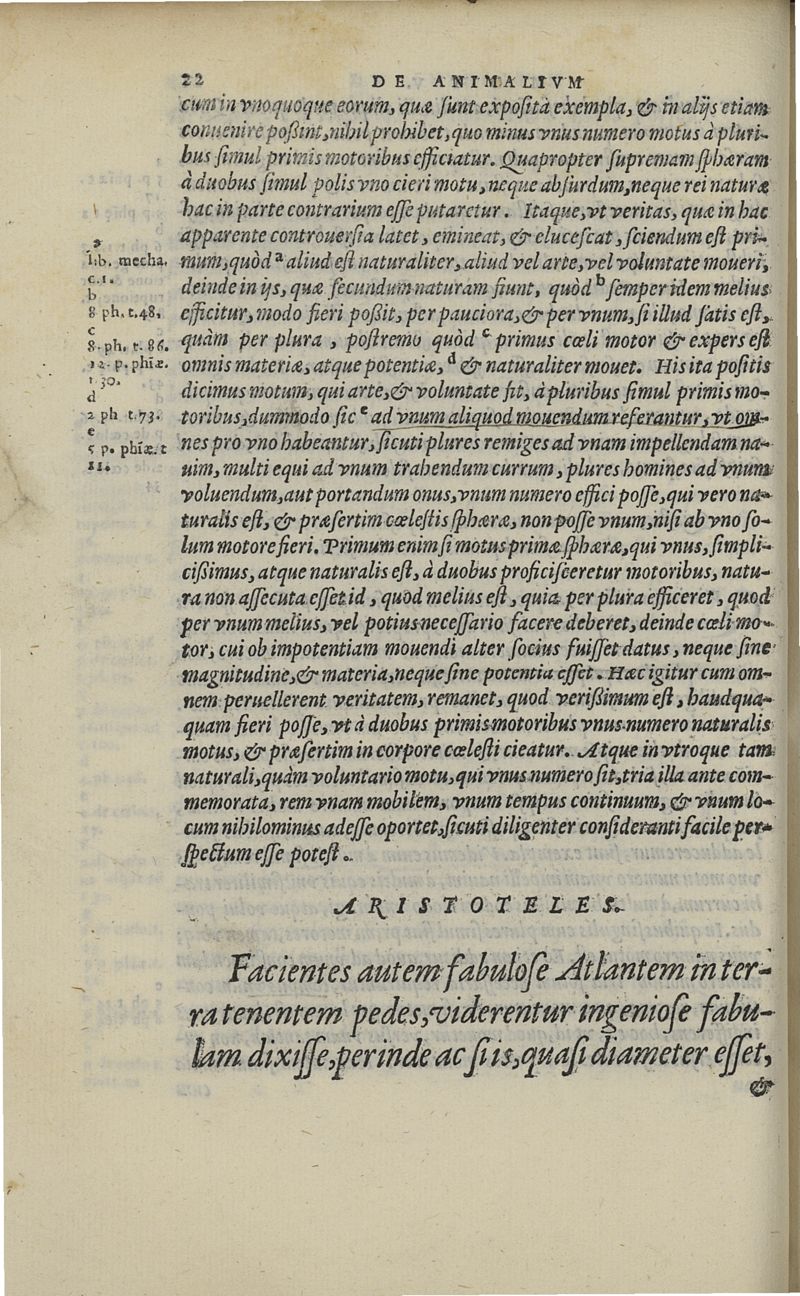 22 DE ANIMALIVM
cum in vnoquoque eorum, quæ ſunt expoſita exempla, & in alijs etiam
conuenire poßint, nihil prohibet, quo minus vnus numero motus à pluri-
bus ſimul primis motoribus efficiatur. Quapropter ſupremam ſphæram
à duobus ſimul polis vno cieri motu, neque abſurdum, neque rei naturæ
hac in parte contrarium eſſe putaretur. Itaque, vt veritas, quæ in hac
apparente controuerſia latet, emineat, & eluceſcat, ſciendum eſt pri-
mum, quòd a aliud eſt naturaliter, aliud vel arte, vel voluntate moueri,
deinde in ijs, quæ ſecundum naturam fiunt, quòd b ſemper idem melius
efficitur, modo fieri poßit, per pauciora, & per vnum, ſi illud ſatis eſt,
quàm per plura, poſtremo quòd c primus cœli motor & expers eſt
omnis materiæ, atque potentiæ, d & naturaliter mouet. His ita poſitis
dicimus motum, qui arte, & voluntate fit, à pluribus ſimul primis mo-
toribus, dummodo ſic e ad vnum aliquod mouendum referantur, vt om-
nes pro vno habeantur, ſicuti plures remiges ad vnam impellendam na-
uim, multi equi ad vnum trahendum currum, plures homines ad vnum
voluendum, aut portandum onus, vnum numero effici poſſe, qui vero na-
turalis eſt, & præſertim cœleſtis ſphæræ, non poſſe vnum, niſi ab vno ſo-
lum motore fieri. Primum enim ſi motus primæ ſphæræ, qui vnus, ſimpli-
cißimus, atque naturalis eſt, à duobus proficiſceretur motoribus, natu-
ra non aſſecuta eſſet id, quod melius eſt, quia per plura efficeret, quod
per vnum melius, vel potius neceſſario facere deberet, deinde cœli mo-
tor, cui ob impotentiam mouendi alter ſocius fuiſſet datus, neque ſine
magnitudine, & materia, neque ſine potentia eſſet. Hæc igitur cum om-
nem peruellerent veritatem, remanet, quod verißimum eſt, haudqua-
quam fieri poſſe, vt à duobus primis motoribus vnus numero naturalis
motus, & præſertim in corpore cœleſti cieatur. Atque in vtroque tam
naturali, quàm voluntario motu, qui vnus numero ſit, tria illa ante com-
memorata, rem vnam mobilem, vnum tempus continuum, & vnum lo-
cum nihilominus adeſſe oportet, ſicuti diligenter conſideranti facile per-
ſpectum eſſe poteſt.
a
lib. mecha.
c. 1.
b
8 ph. t. 48,
c
8. ph. t. 86.
12. p. phiæ.
t. 30.
d
2 ph t. 73.
e
5 p. phiæ. t
11.
ARISTOTELES.
Facientes autem fabuloſe Atlantem in ter-
ra tenentem pedes, viderentur ingenioſe fabu-
lam dixiſſe, perinde ac ſi is, quaſi diameter eſſet,
&